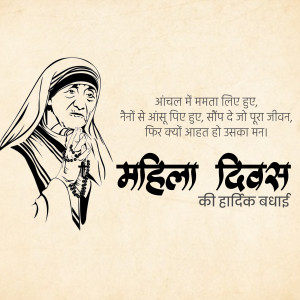 आंचल में ममता लिए हुए,
नैनों से आंसू पिए हुए, सौंप दे जो पूरा जीवन,
फिर क्यों आहत हो उसका मन।
महिला दिवस
की हार्दिक बधाई